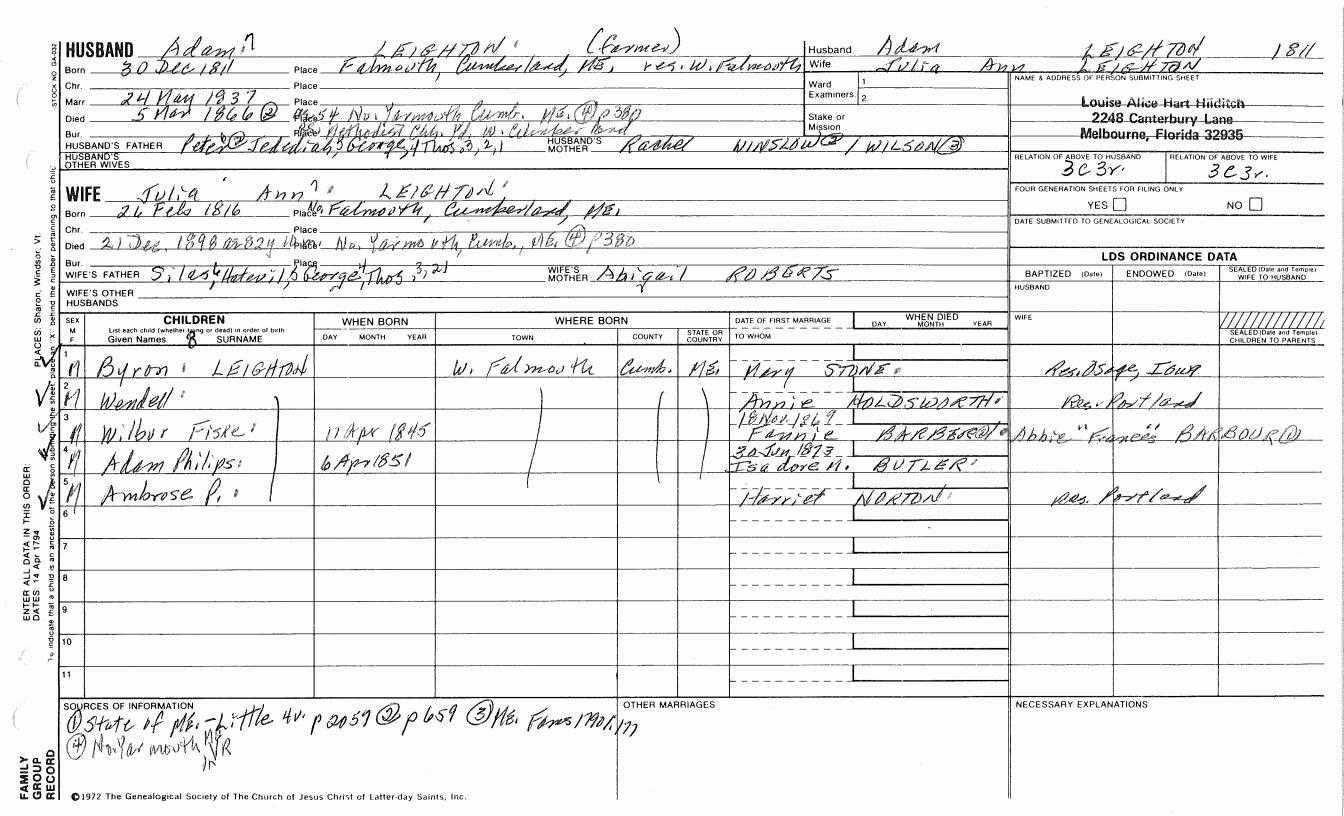 HUSBAND Adam⁷ LEIGHTON (farmer)
Born 30 Dec 1811 Place Falmouth, Cumberland, ME. res. W. Falmouth
Chr. Place
Marr. 24 May 1837 Place
Died 5 Mar 1866 ② 54 No. Yarmouth Cumb. ME. ④ p380
Bur. Place Methodist Chh. Yd. W. Cumberland
HUSBAND'S FATHER Peter⁶ ② Jedediah,⁵ George,⁴ Thos.³,²,¹ HUSBAND'S MOTHER Rachel WINSLOW② / WILSON③
HUSBAND'S OTHER WIVES
Husband Adam LEIGHTON 1811
Wife Julia Ann LEIGHTON
Ward Examiners 1. 2.
Stake or Mission
NAME & ADDRESS OF PERSON SUBMITTING SHEET
Louise Alice Hart Hilditch
2248 Canterbury Lane
Melbourne, Florida 32935
RELATION OF ABOVE TO HUSBAND RELATION OF ABOVE TO WIFE
3C3r. 3C3r.
FOUR GENERATION SHEETS FOR FILING ONLY
YES NO
DATE SUBMITTED TO GENEALOGICAL SOCIETY
WIFE Julia Ann⁷ LEIGHTON
Born 26 Feb 1816 Place No. Falmouth, Cumberland, ME.
Chr. Place
Died 21 Dec. 1898 82y No. Yarmouth, Cumb., ME. ④ p380
Bur. Place
WIFE'S FATHER Silas⁶, Hatevil,⁵ George,⁴ Thos.³,²,¹ WIFE'S MOTHER Abigail ROBERTS
WIFE'S OTHER HUSBANDS
LDS ORDINANCE DATA
BAPTIZED (Date) ENDOWED (Date) SEALED (Date and Temple) WIFE TO HUSBAND
HUSBAND
WIFE
SEALED (Date and Temple) CHILDREN TO PARENTS
SEX M F CHILDREN WHEN BORN WHERE BORN DATE OF FIRST MARRIAGE WHEN DIED
List each child (whether living or dead) in order of birth
Given Names 8 SURNAME DAY MONTH YEAR TOWN COUNTY STATE OR COUNTRY TO WHOM DAY MONTH YEAR
1 M Byron LEIGHTON W. Falmouth Cumb. ME. Mary STONE Res. Osage, Iowa
2 M Wendell Annie HOLDSWORTH Res. Portland
3 M Wilbur Fiske 11 Apr 1845 18 Nov. 1869 Fannie BARBER Abbie "Frances" BARBOUR①
4 M Adam Philips 6 Apr 1851 30 Jun 1873 Isadore M. BUTLER
5 M Ambrose P. Harriet NORTON res. Portland
6
7
8
9
10
11
SOURCES OF INFORMATION
① State of ME. - Little 4v. p2059 ② p659 ③ ME. Fams 1790 1:177
④ No. Yarmouth ME VR
OTHER MARRIAGES
NECESSARY EXPLANATIONS
©1972 The Genealogical Society of The Church of Jesus Christ of Latter-day Saints, Inc.
STOCK NO. GA-032
PLACES: Sharon, Windsor, Vt.
ENTER ALL DATA IN THIS ORDER:
DATES: 14 Apr 1794
To indicate that a child is an ancestor of the person submitting the sheet, place an "X" behind the number pertaining to that child.
FAMILY GROUP RECORD